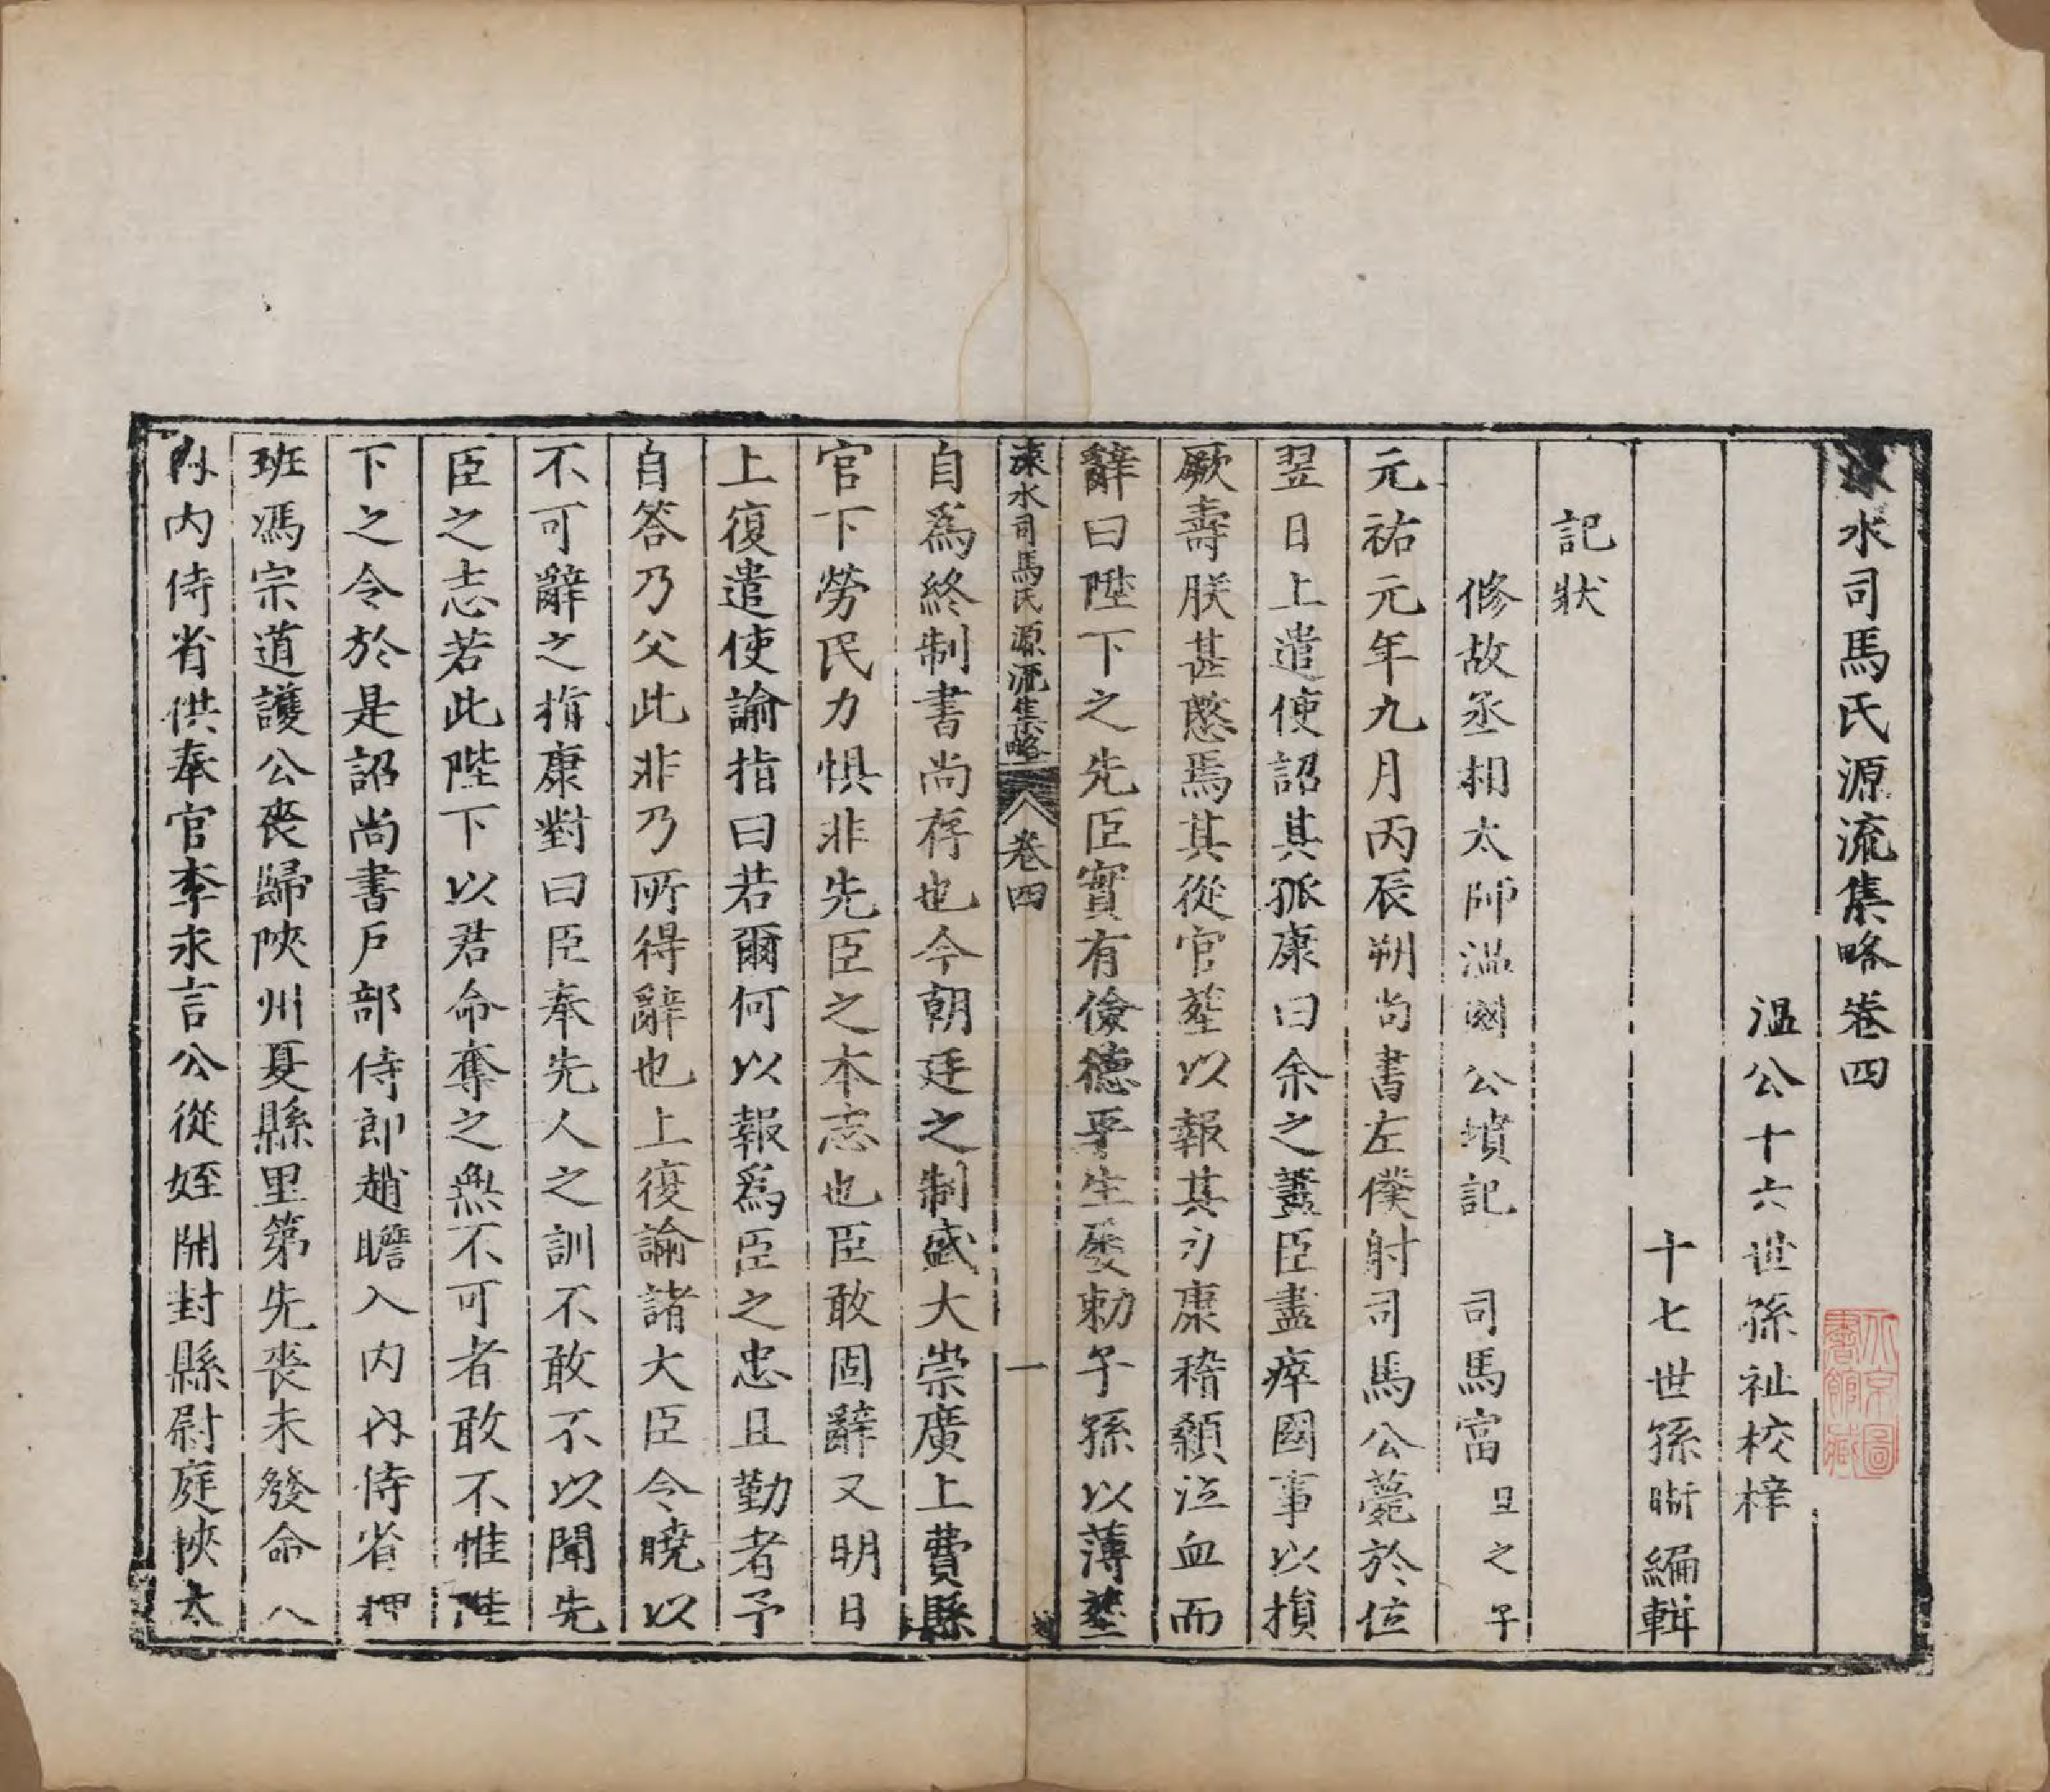 水司馬氏源流集略卷四
溫公十六世孫祉校梓
十七世孫晣編輯
記狀
修故丞相太師溫國公墳記 司馬富 旦之子
元祐元年九月丙辰朔尚書左僕射司馬公薨於位
翌日上遣使詔其孤康曰余之藎臣盡瘁國事以損
厥壽朕甚慜焉其從官塟以報其功康稽顙泣血而
辭曰陛下之先臣實有儉德平生屡勅子孫以薄塟
涑水司馬氏源流集略 卷四 一
自爲終制書尚存也今朝廷之制盛大崇廣上費縣
官下勞民力惧非先臣之本志也臣敢固辭又明日
上復遣使諭指曰若爾何以報爲臣之忠且勤者予
自答乃父此非乃所得辭也上復諭諸大臣令曉以
不可辭之指康對曰臣奉先人之訓不敢不以聞先
臣之志若此陛下以君命奪之無不可者敢不惟陛
下之令於是詔尚書戶部侍郎趙瞻入內內侍省押
班馮宗道護公丧歸陝州夏縣里第先丧未發命入
內內侍省供奉官李永言公從姪開封縣尉庭挾太
北京圖書館藏